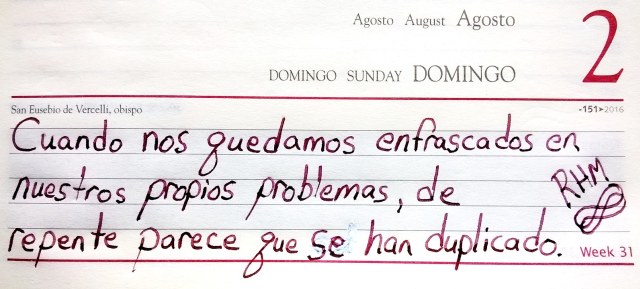 Agosto August Agosto
2
DOMINGO SUNDAY DOMINGO
San Eusebio de Vercelli, obispo
-151>2016
Cuando nos quedamos enfrascados en
nuestros propios problemas, de
RHM
repente parece que se han duplicado.
Week 31